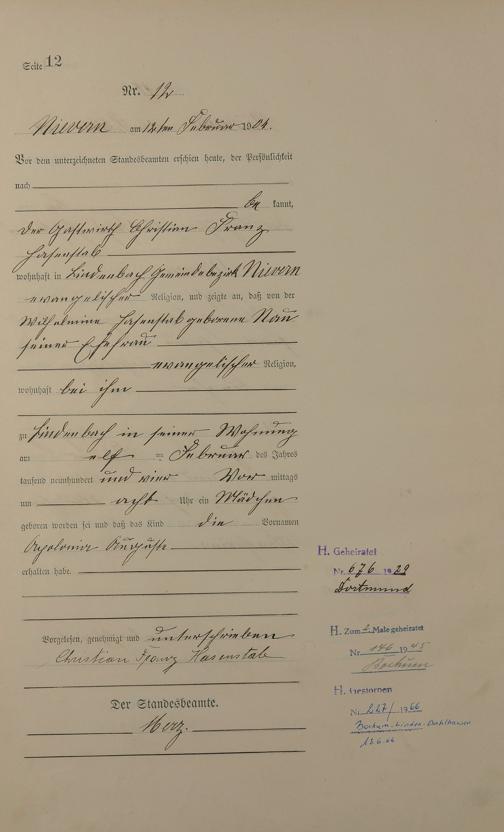 Seite 12
Nr. 12
Nievern am 12ten Februar 1904.
Vor dem unterzeichneten Standesbeamten erschien heute, der Persönlichkeit
nach
be kannt,
der Gastwirth Christian Franz
Hasenstab
wohnhaft in Lindenbach Gemeindebezirk Nievern
evangelischer Religion, und zeigte an, daß von der
Wilhelmine Hasenstab geborene Nau
seiner Ehefrau
evangelischer Religion,
wohnhaft bei ihm
zu Lindenbach in seiner Wohnung
am elf = Februar des Jahres
tausend neunhundert und vier Vor mittags
um acht Uhr ein Mädchen
geboren worden sei und daß das Kind die Vornamen
Apolonia Auguste
erhalten habe.
Vorgelesen, genehmigt und unterschrieben
Christian Franz Hasenstab
Der Standesbeamte.
Merz.
H. Geheiratet
Nr. 676 1929
Dortmund
H. Zum 2. Male geheiratet
Nr. 146 1945
Bochum
H. Gestorben
Nr. 227/1966
Bochum-Linden-Dahlhausen